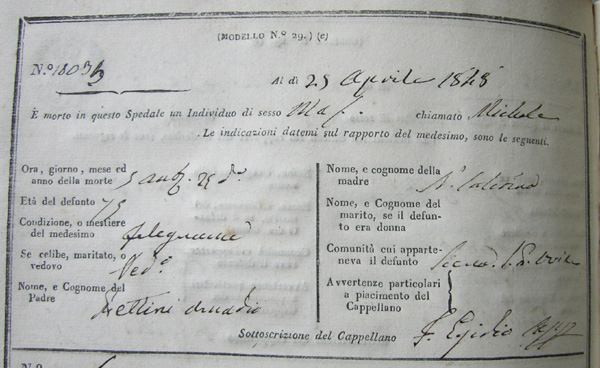 (MODELLO N.º 29.) (e)
N.º 1803
Al dì 25 Aprile 1848
È morto in questo Spedale un Individuo di sesso Mas. chiamato Michele
Le indicazioni datemi sul rapporto del medesimo, sono le seguenti.
Ora, giorno, mese ed
anno della morte 5 ant. 25 do.
Età del defunto 75
Condizione, o mestiere
del medesimo falegname
Se celibe, maritato, o
vedovo Ved.º
Nome, e Cognome del
Padre Bettini Amadio
Nome, e cognome della
madre N. Caterina
Nome, e Cognome del
marito, se il defun-
to era donna
Comunità cui apparte-
neva il defunto Siena
Avvertenze particolari
a piacimento del
Cappellano
Sottoscrizione del Cappellano F. Egidio
N.º